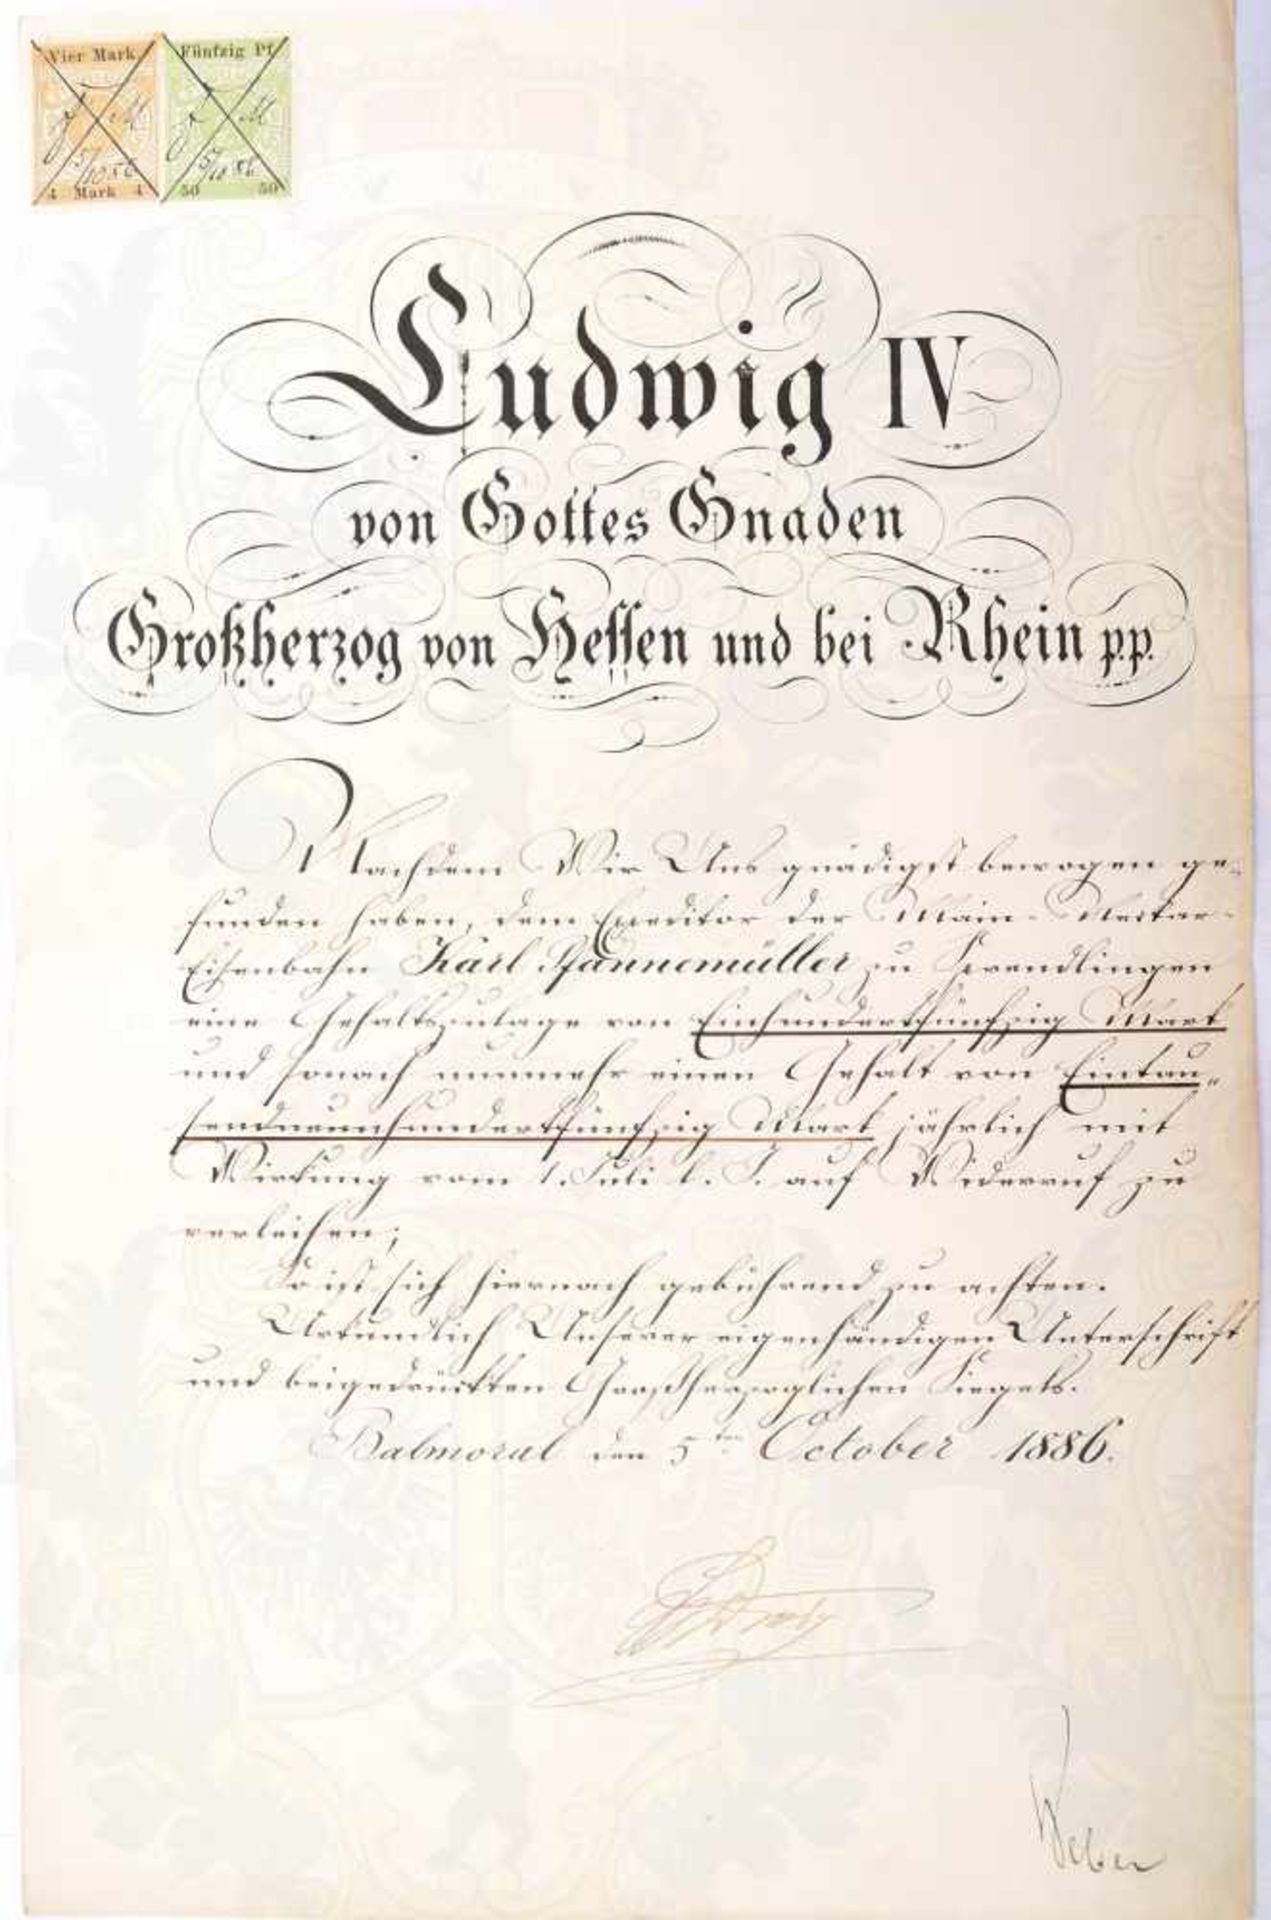 Vier Mark Fünfzig Pf
5/10 86 5/10 86
4 Mark 4 50 50
Ludwig IV
von Gottes Gnaden
Großherzog von Hessen und bei Rhein p.p.
Nachdem Wir Uns gnädigst bewogen ge-
funden haben, dem Expeditor der Main-Neckar-
Eisenbahn Karl Pfannemüller zu Sprendlingen
eine Gehaltszulage von Einhundertfünfzig Mark
und sonach nunmehr einen Gehalt von Eintau-
sendneunhundertfünfzig Mark jährlich mit
Wirkung vom 1. Juli l. J. auf Widerruf zu
verleihen;
So ist sich hiernach gebührend zu achten.
Urkundlich Unserer eigenhändigen Unterschrift
und beigedrückten Großherzoglichen Siegels.
Balmoral den 5ten October 1886.
Ludwig
Weber